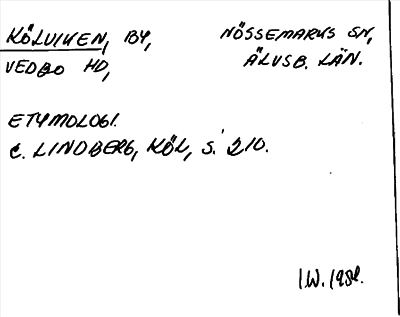 KÖLVIKEN, BY, NÖSSEMARKS SN,
VEDBO HD, ÄLVSB. LÄN.
ETYMOLOGI.
C. LINDBERG, KÖL, S. 210.
I.W. 1981.